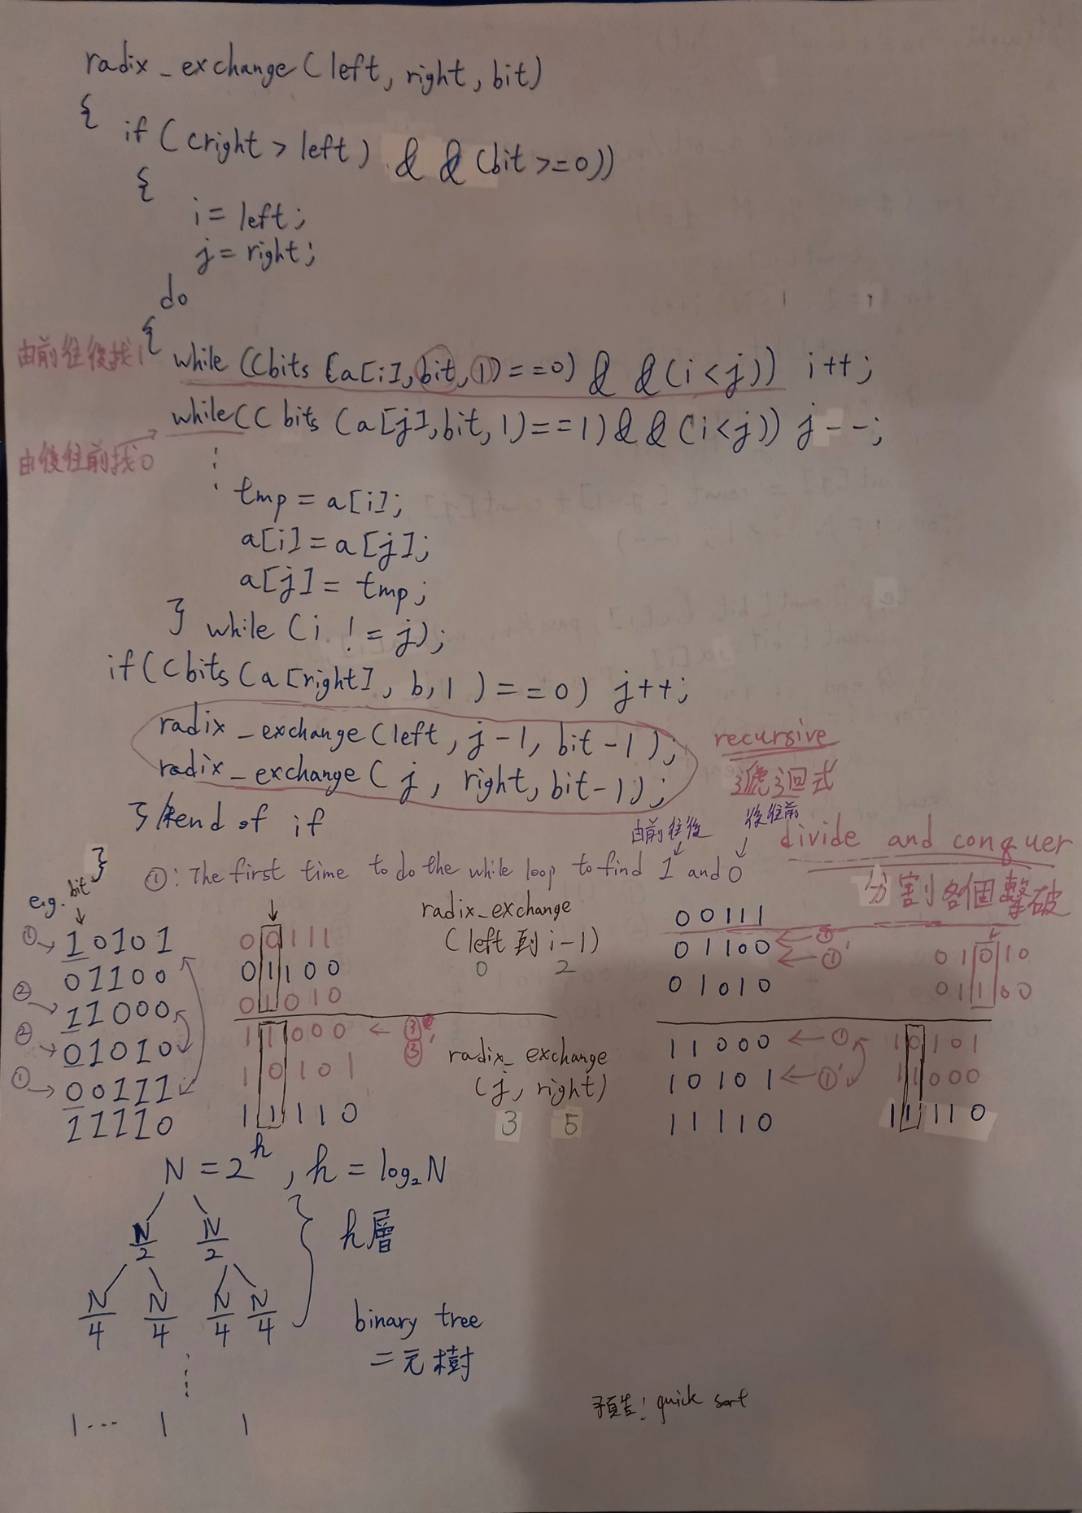 radix_exchange(left, right, bit)
{
if(cright > left) && (bit >= 0))
{
i = left;
j = right;
do
{
由前往後找1
while ((bits (a[i], bit, 1) == 0) && (i < j)) i++;
while(( bits (a[j], bit, 1) == 1) && (i < j)) j--;
由後往前找0
tmp = a[i];
a[i] = a[j];
a[j] = tmp;
} while (i != j);
if((bits (a[right], b, 1) == 0) j++;
radix_exchange(left, j-1, bit-1);
radix_exchange( j, right, bit-1);
recursive
遞迴式
} end of if
}
由前往後 後往前
divide and conquer
分割各個擊破
①: The first time to do the while loop to find 1 and 0
e.g. bit
① 10101
01100
② 11000
② 01010
① 00111
11110
00111
01100
01010
11000 ③
10101 ③'
11110
radix_exchange
(left 到 i-1)
0 2
radix_exchange
(j, right)
3 5
00111
01100 ①
01010 ①'
11000 ①
10101 ①'
11110
01010
01100
10101
11000
11110
N = 2^h, h = log₂N
N/2 N/2
h層
N/4 N/4 N/4 N/4
binary tree
二元樹
1 ... 1 1
預告! quick sort